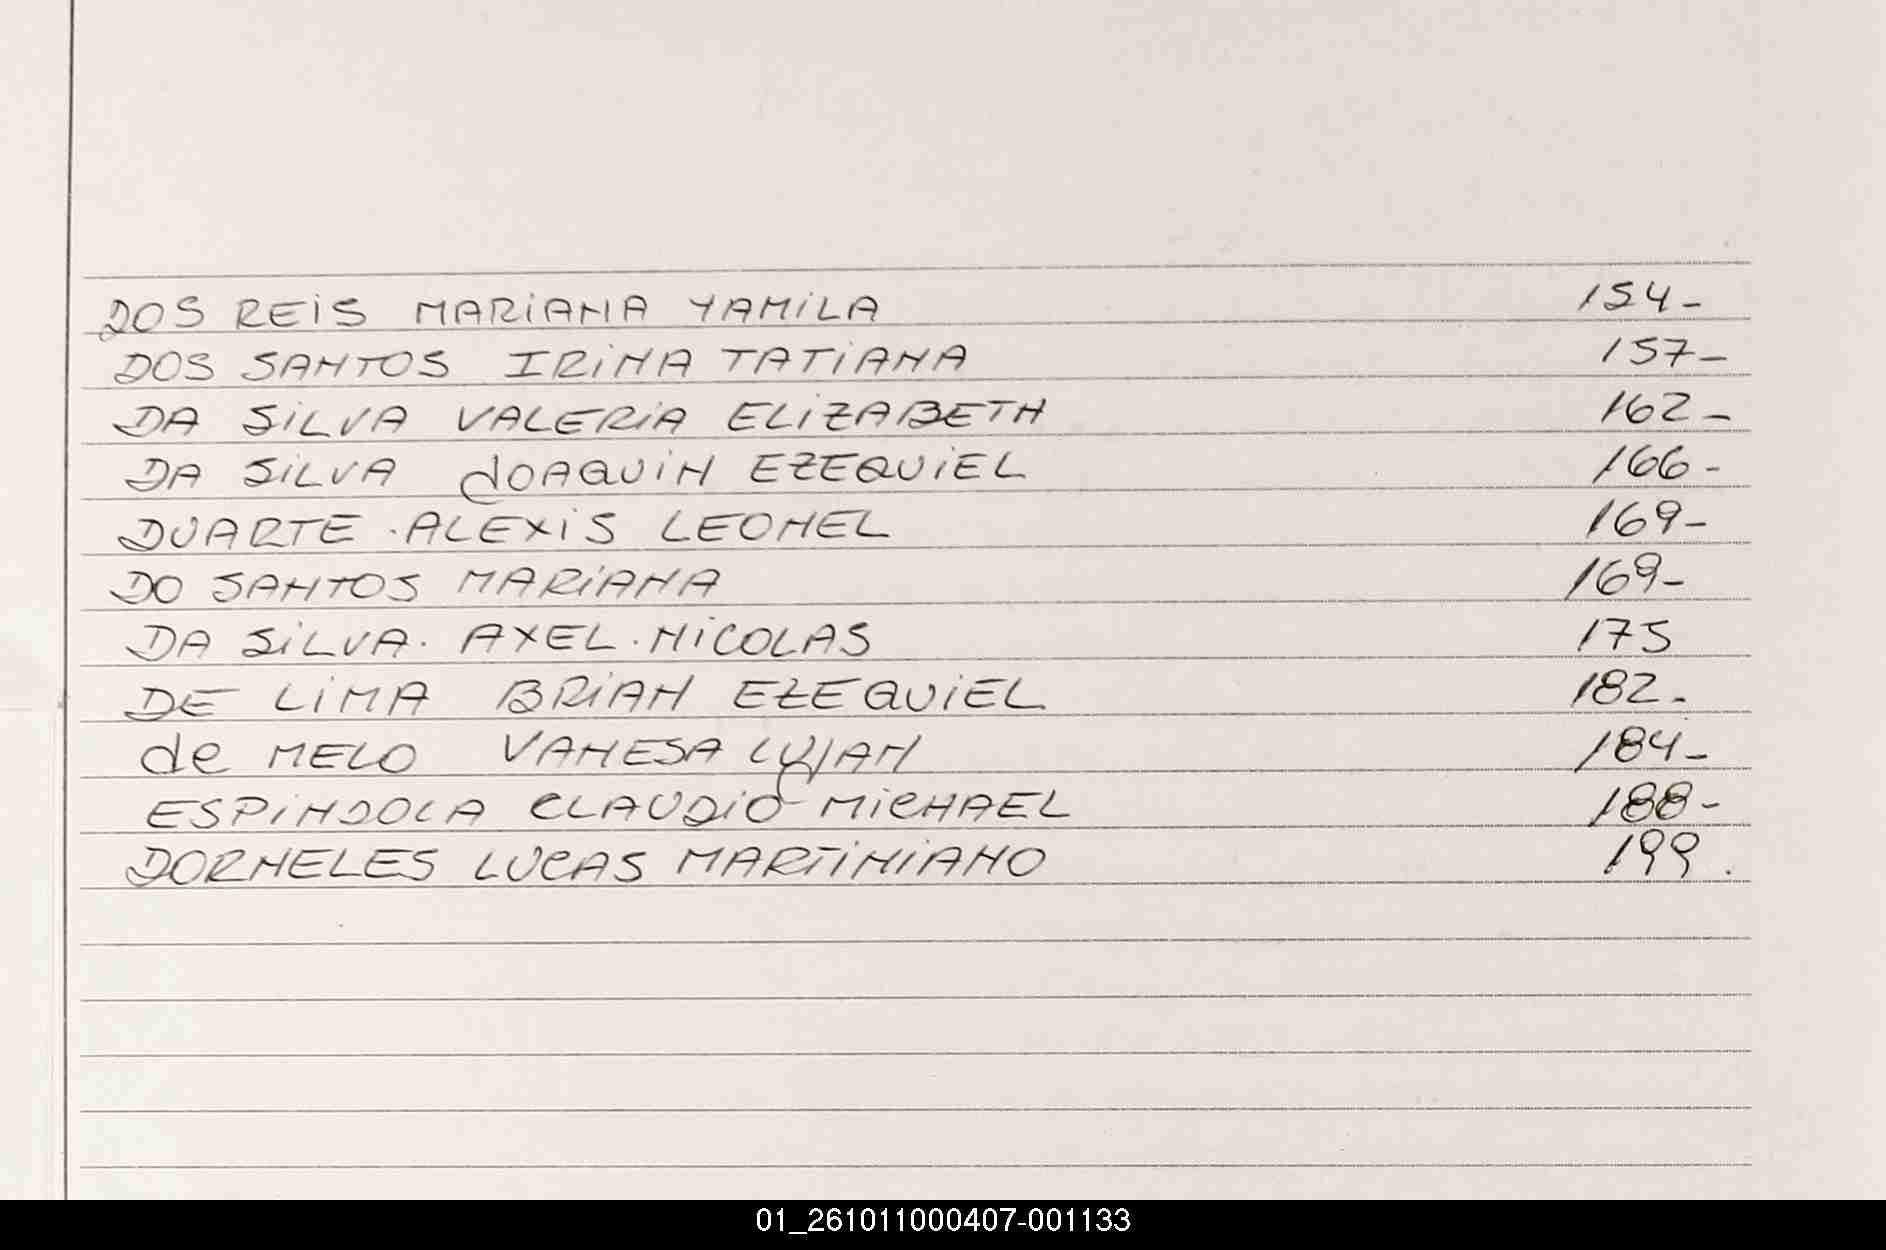 DOS REIS MARIANA YAMILA 154-
DOS SANTOS IRINA TATIANA 157-
DA SILVA VALERIA ELIZABETH 162-
DA SILVA JOAQUIN EZEQUIEL 166-
DUARTE . ALEXIS LEONEL 169-
DO SANTOS MARIANA 169-
DA SILVA. AXEL . NICOLAS 175
DE LIMA BRIAN EZEQUIEL 182-
de MELO VANESA LUJAN 184-
ESPINDOLA CLAUDIO MICHAEL 188-
DORNELES LUCAS MARTINIANO 199.
01_261011000407-001133